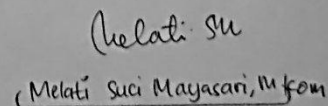 Melati su
(Melati Suci Mayasari, M.Kom